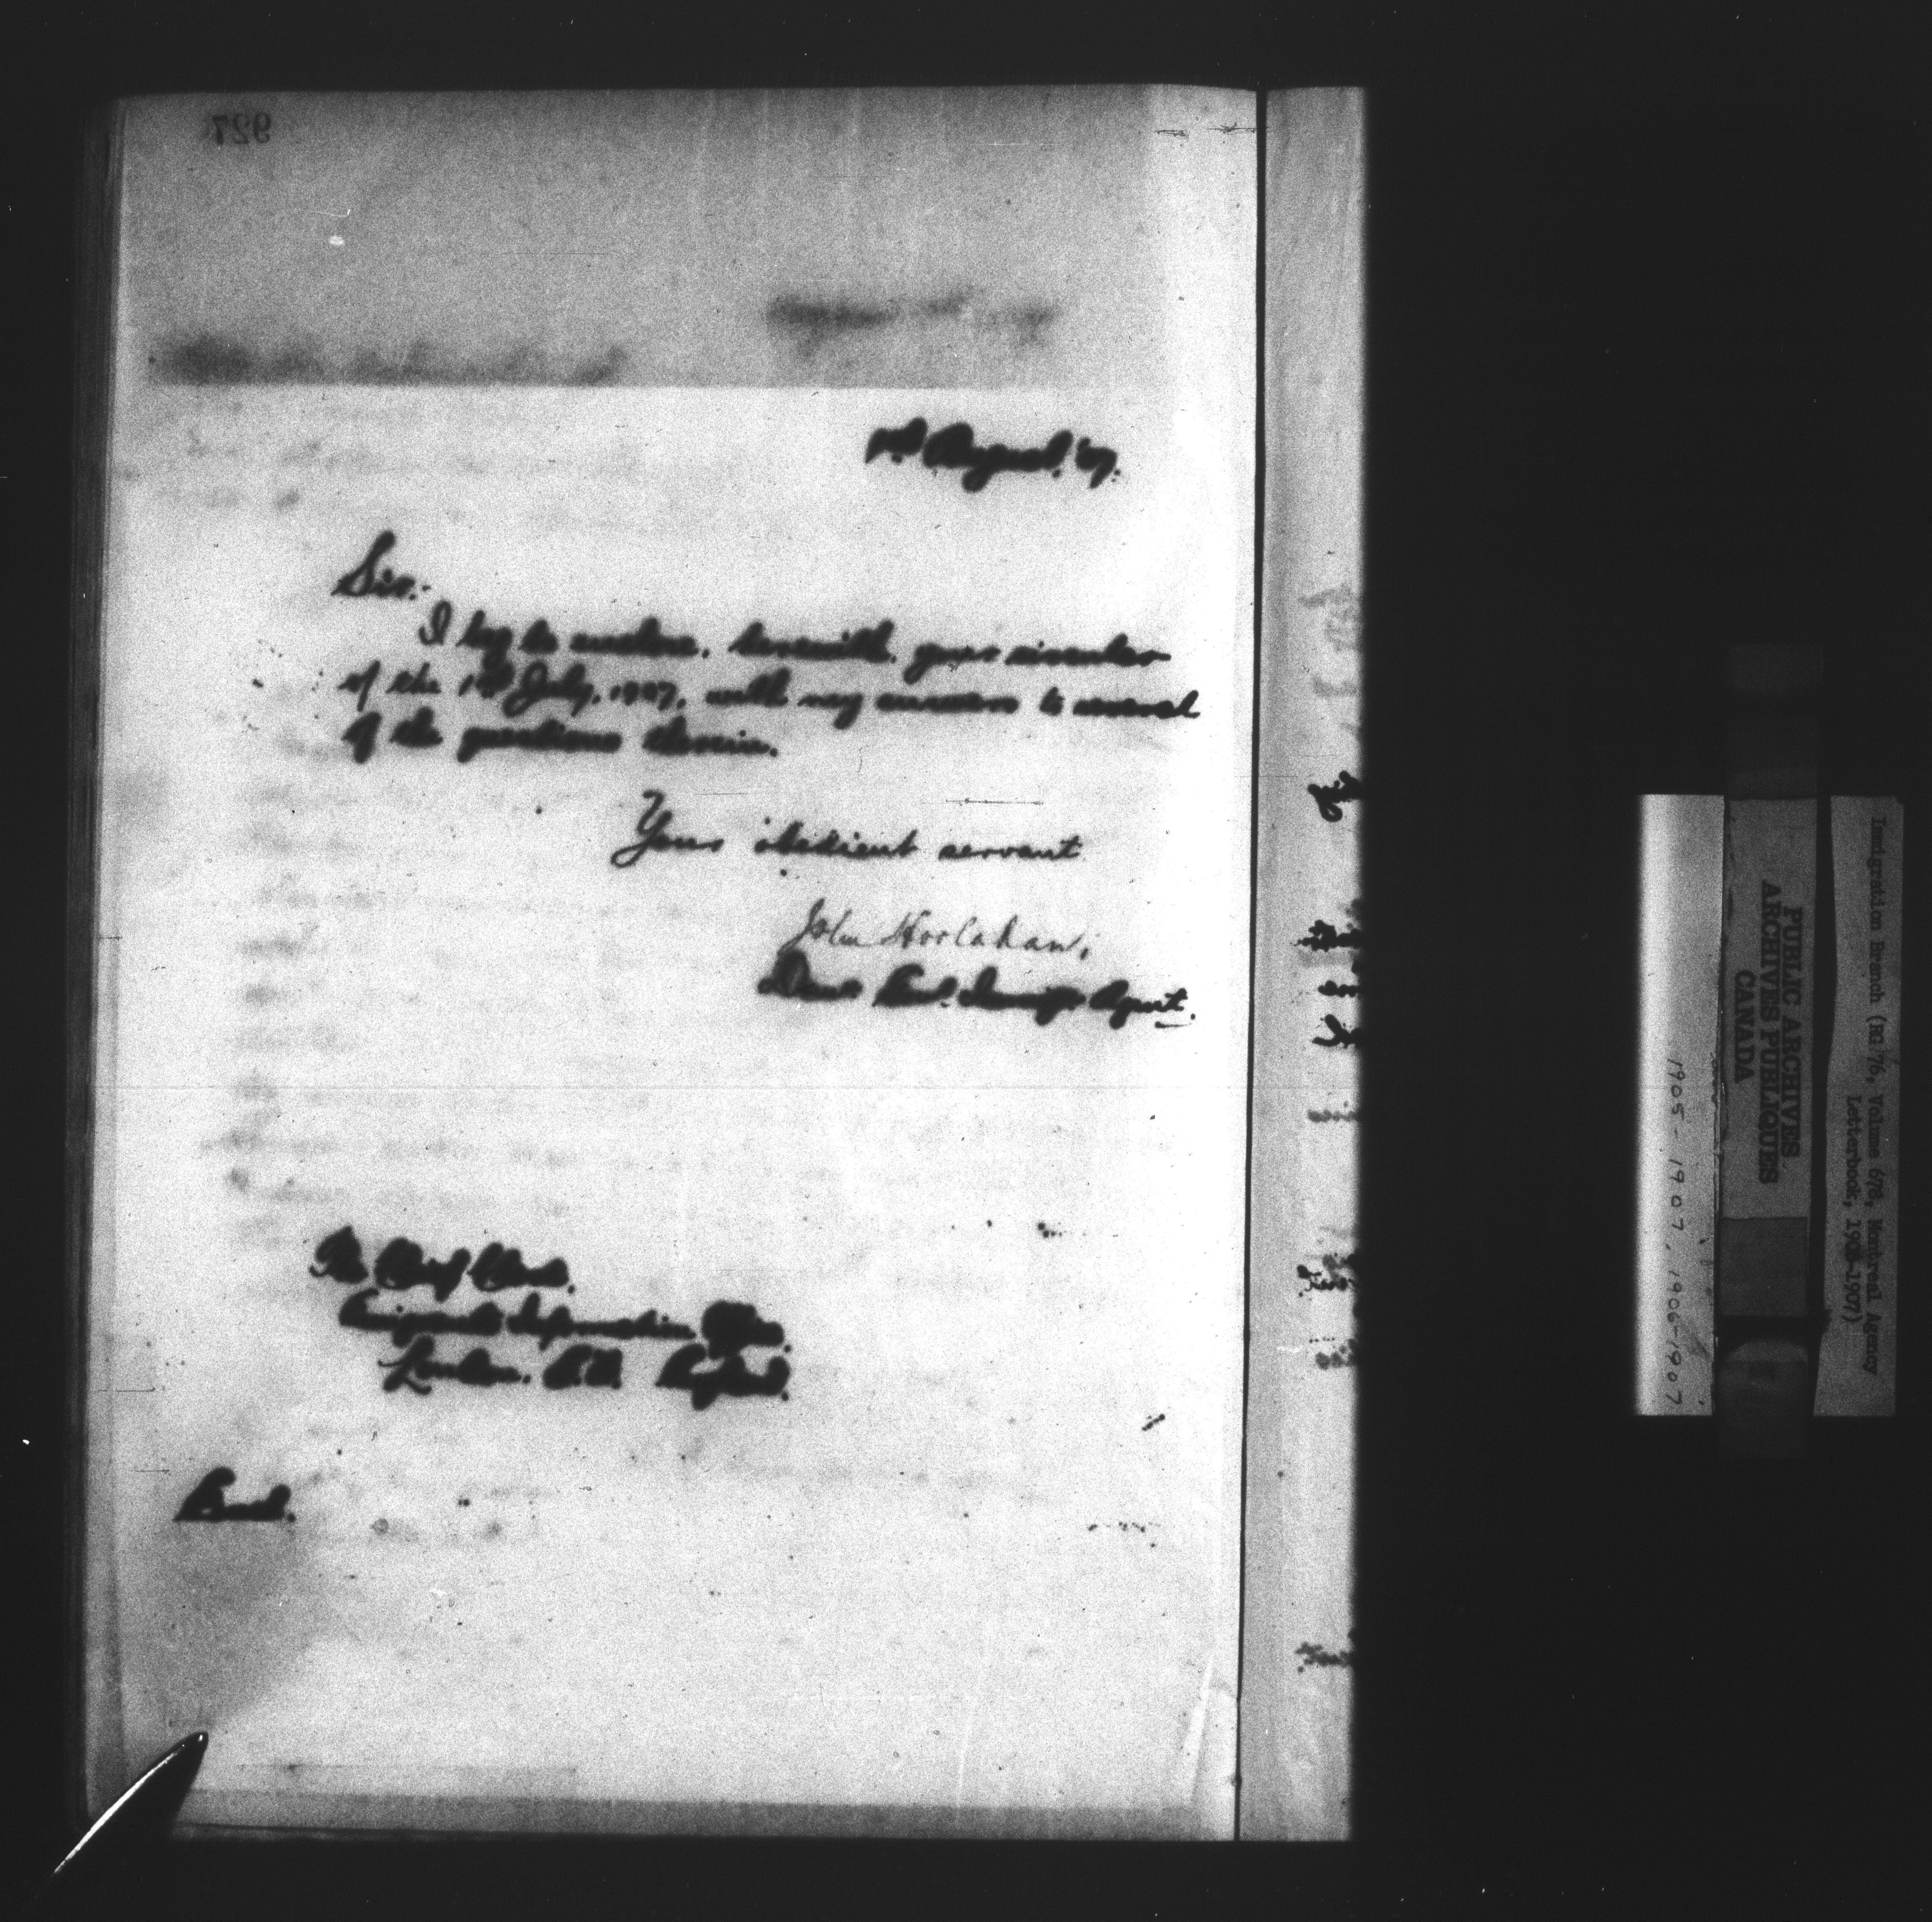 927
1st August. '07.
Sir:-
I beg to enclose, herewith, your circular
of the 1st July, 1907, with my answers to several
of the questions therein.
Your obedient servant
John Hoolahan,
Agent.
The Chief Clerk.
Emigrants Information Office.
London. S.W. England.
Encl.
Immigration Branch (RG 76, Volume 678, Montreal Agency
Letterbook, 1905-1907)
PUBLIC ARCHIVES
ARCHIVES PUBLIQUES
CANADA
1905-1907, 1906-1907